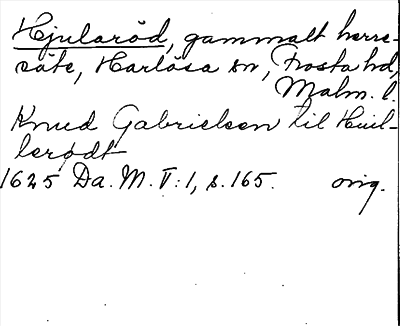 Hjularöd, gammalt herre-
säte, Harlösa sn, Frosta hd,
Malm. l.
Knud Gabrielsen til Huil-
lerødt
1625 Da. M. V:1, s. 165. orig.